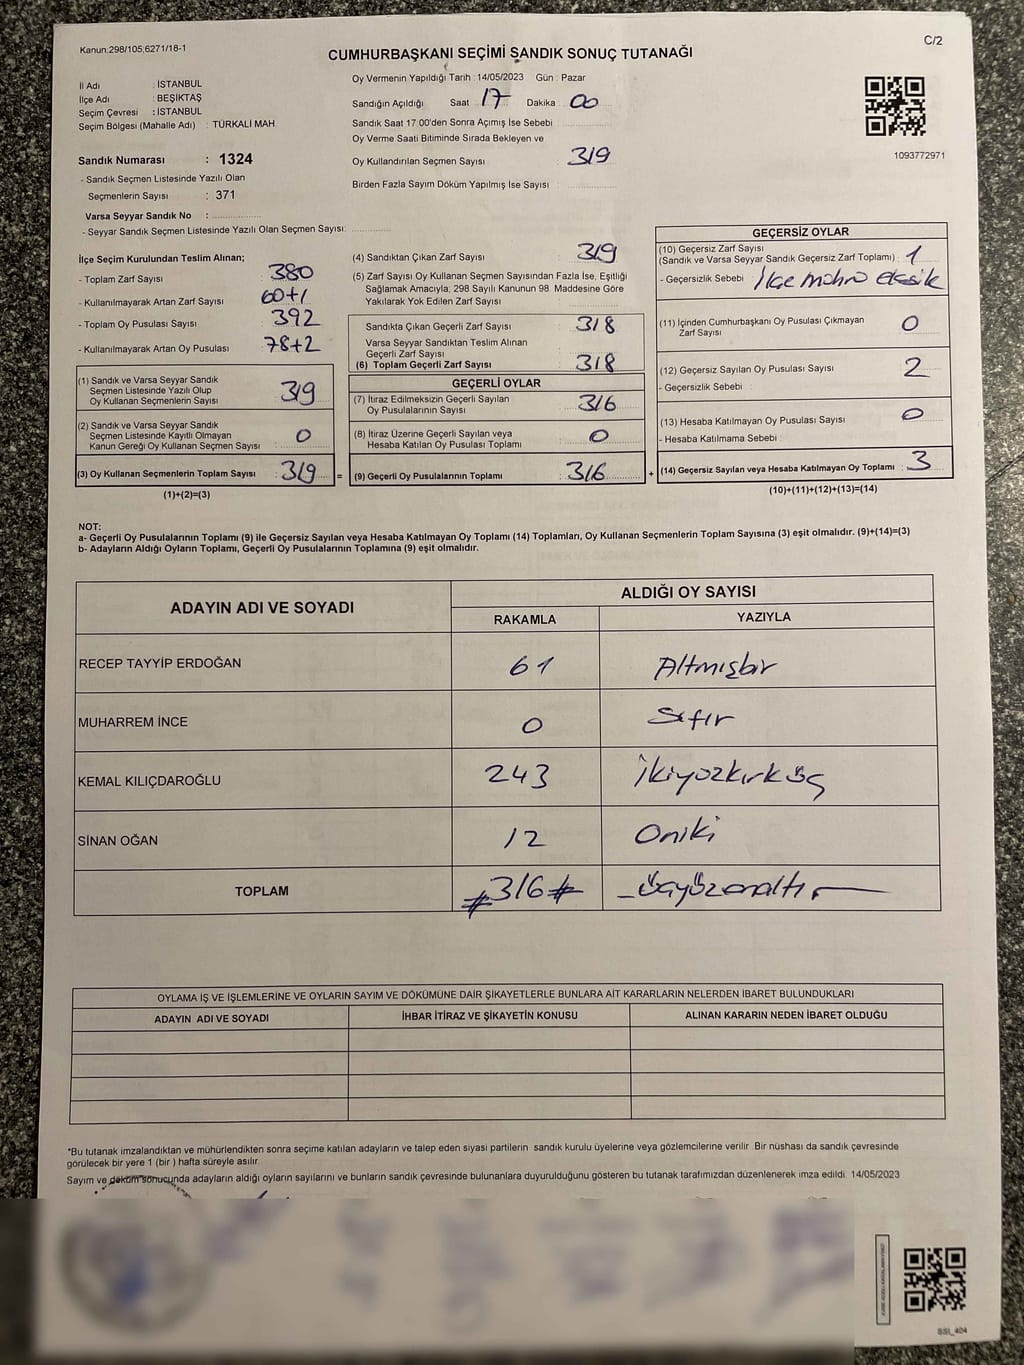 Kanun;298/105;6271/18-1
C/2
CUMHURBAŞKANI SEÇİMİ SANDIK SONUÇ TUTANAĞI
İl Adı : İSTANBUL
İlçe Adı : BEŞİKTAŞ
Seçim Çevresi : İSTANBUL
Seçim Bölgesi (Mahalle Adı) : TÜRKALİ MAH.
Sandık Numarası : 1324
- Sandık Seçmen Listesinde Yazılı Olan
Seçmenlerin Sayısı : 371
Varsa Seyyar Sandık No :
- Seyyar Sandık Seçmen Listesinde Yazılı Olan Seçmen Sayısı:
Oy Vermenin Yapıldığı Tarih : 14/05/2023 Gün : Pazar
Sandığın Açıldığı Saat 17 Dakika 00
Sandık Saat 17:00'den Sonra Açımış İse Sebebi
Oy Verme Saati Bitiminde Sırada Bekleyen ve
Oy Kullandırılan Seçmen Sayısı : 319
Birden Fazla Sayım Döküm Yapılmış İse Sayısı :
1093772971
İlçe Seçim Kurulundan Teslim Alınan;
- Toplam Zarf Sayısı : 380
- Kullanılmayarak Artan Zarf Sayısı : 60+1
- Toplam Oy Pusulası Sayısı : 392
- Kullanılmayarak Artan Oy Pusulası : 78+2
(1) Sandık ve Varsa Seyyar Sandık
Seçmen Listesinde Yazılı Olup
Oy Kullanan Seçmenlerin Sayısı : 319
(2) Sandık ve Varsa Seyyar Sandık
Seçmen Listesinde Kayıtlı Olmayan
Kanun Gereği Oy Kullanan Seçmen Sayısı : 0
(3) Oy Kullanan Seçmenlerin Toplam Sayısı : 319 =
(1)+(2)=(3)
(4) Sandıktan Çıkan Zarf Sayısı : 319
(5) Zarf Sayısı Oy Kullanan Seçmen Sayısından Fazla İse, Eşitliği
Sağlamak Amacıyla, 298 Sayılı Kanunun 98. Maddesine Göre
Yakılarak Yok Edilen Zarf Sayısı :
Sandıkta Çıkan Geçerli Zarf Sayısı : 318
Varsa Seyyar Sandıktan Teslim Alınan
Geçerli Zarf Sayısı
(6) Toplam Geçerli Zarf Sayısı : 318
GEÇERLİ OYLAR
(7) İtiraz Edilmeksizin Geçerli Sayılan
Oy Pusulalarının Sayısı : 316
(8) İtiraz Üzerine Geçerli Sayılan veya
Hesaba Katılan Oy Pusulası Toplamı : 0
(9) Geçerli Oy Pusulalarının Toplamı : 316 +
GEÇERSİZ OYLAR
(10) Geçersiz Zarf Sayısı
(Sandık ve Varsa Seyyar Sandık Geçersiz Zarf Toplamı) : 1
- Geçersizlik Sebebi : İlçe mührü eksik
(11) İçinden Cumhurbaşkanı Oy Pusulası Çıkmayan
Zarf Sayısı : 0
(12) Geçersiz Sayılan Oy Pusulası Sayısı : 2
- Geçersizlik Sebebi :
(13) Hesaba Katılmayan Oy Pusulası Sayısı : 0
- Hesaba Katılmama Sebebi :
(14) Geçersiz Sayılan veya Hesaba Katılmayan Oy Toplamı : 3
(10)+(11)+(12)+(13)=(14)
NOT:
a- Geçerli Oy Pusulalarının Toplamı (9) ile Geçersiz Sayılan veya Hesaba Katılmayan Oy Toplamı (14) Toplamları, Oy Kullanan Seçmenlerin Toplam Sayısına (3) eşit olmalıdır. (9)+(14)=(3)
b- Adayların Aldığı Oyların Toplamı, Geçerli Oy Pusulalarının Toplamına (9) eşit olmalıdır.
ADAYIN ADI VE SOYADI ALDIĞI OY SAYISI
RAKAMLA YAZIYLA
RECEP TAYYİP ERDOĞAN 61 Altmışbir
MUHARREM İNCE 0 Sıfır
KEMAL KILIÇDAROĞLU 243 İkiyüzkırküç
SİNAN OĞAN 12 Oniki
TOPLAM #316# -Üçyüzonaltı-
OYLAMA İŞ VE İŞLEMLERİNE VE OYLARIN SAYIM VE DÖKÜMÜNE DAİR ŞİKAYETLERLE BUNLARA AİT KARARLARIN NELERDEN İBARET BULUNDUKLARI
ADAYIN ADI VE SOYADI İHBAR İTİRAZ VE ŞİKAYETİN KONUSU ALINAN KARARIN NEDEN İBARET OLDUĞU
*Bu tutanak imzalandıktan ve mühürlendikten sonra seçime katılan adayların ve talep eden siyasi partilerin sandık kurulu üyelerine veya gözlemcilerine verilir. Bir nüshası da sandık çevresinde
görülecek bir yere 1 (bir ) hafta süreyle asılır.
Sayım ve döküm sonucunda adayların aldığı oyların sayılarını ve bunların sandık çevresinde bulunanlara duyurulduğunu gösteren bu tutanak tarafımızdan düzenlenerek imza edildi. 14/05/2023
SSI_404